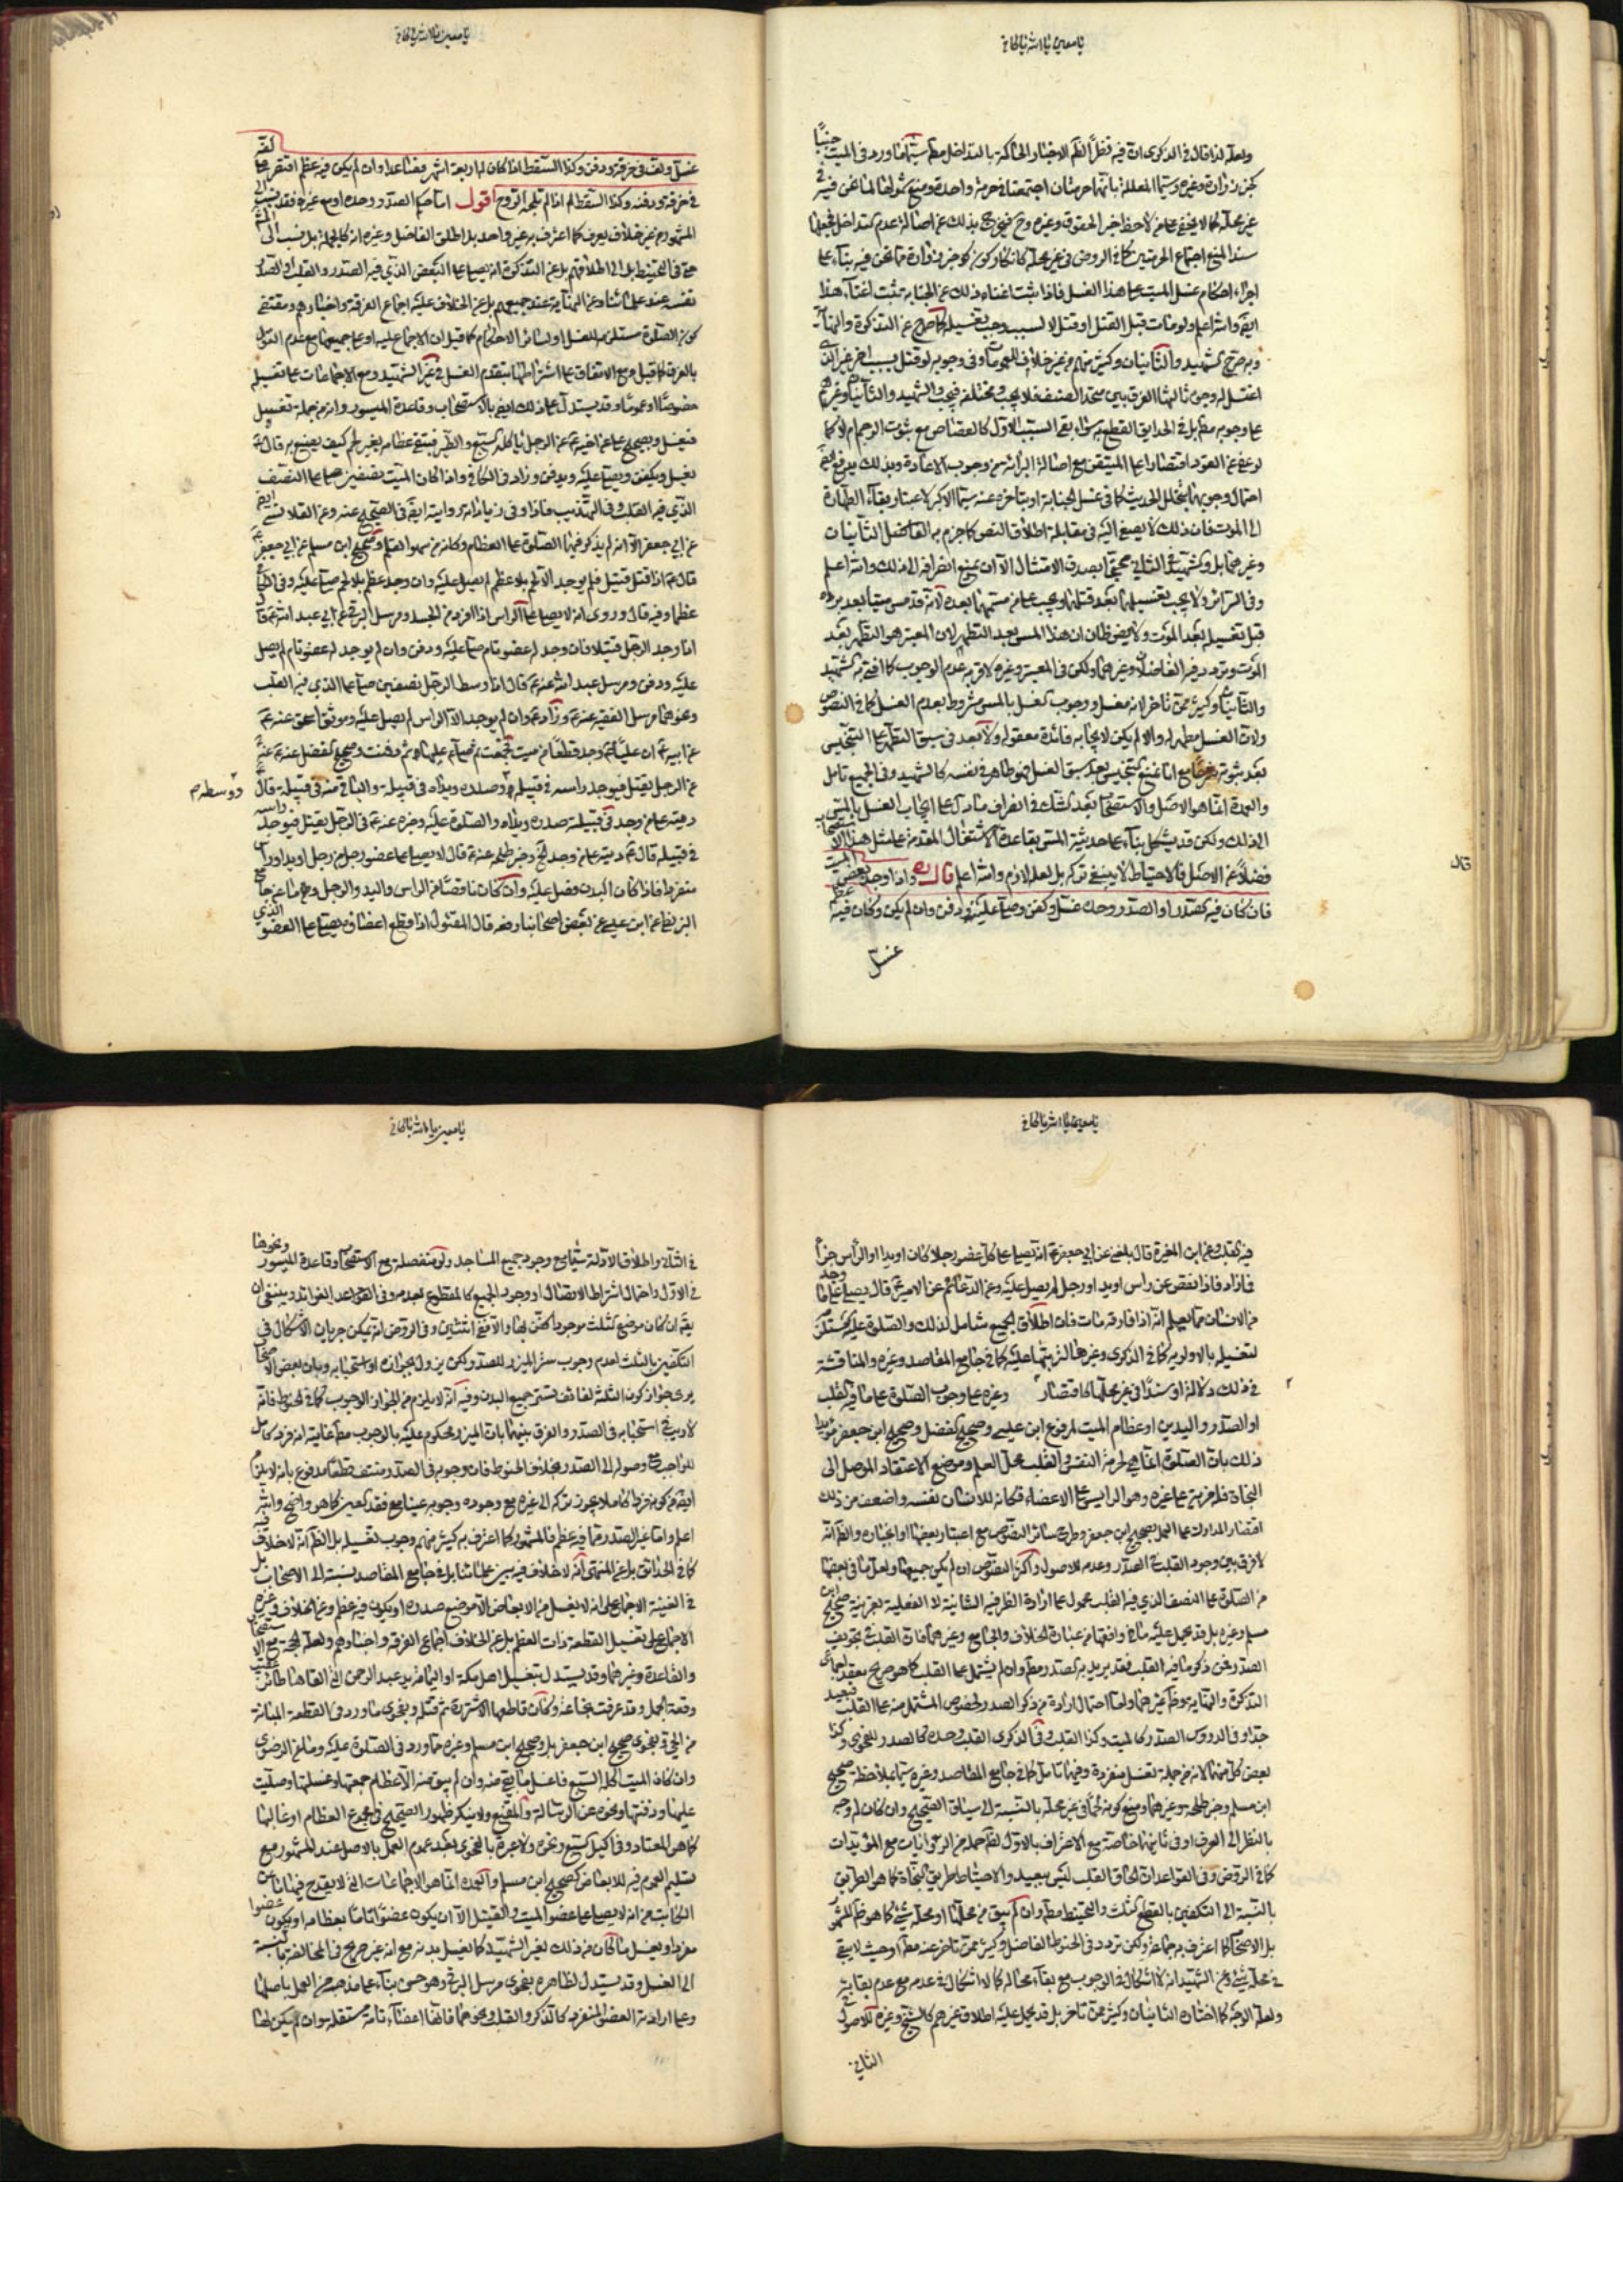 يا معين يا الله يا كافي
ولعله لذا قال في الذكرى ان فيه فضل الاخبار الحاكمة بالتداخل مطلقا سيما ورد في الميت جنبا
كخبر زرارة وغيره وسيما المعللة بانهما حرمتان اجتمعتا في حرمة واحدة ومنع شمولها لما نحن فيه في
غير محله كما لا يخفى على من لاحظ اخر الحقوق وغيره وح فيخرج بذلك عن اصالة عدم التداخل فجعلها
سندا لمنع اجتماع الحرمتين كما في الروض في غير محله
اجراء احكام غسل الميت على هذا الغسل فاذا ثبت اغناء ذلك عن الجنابة ثبت اغناء هذا
ايض والله اعلم ولو مات قبل القتل او قتل لا لسبب وجب تغسيله كما صرح عن التذكرة والنهاية
وبه صرح الشهيد والثانيان وكثير منهم من غير خلاف للعمومات وفي وجوبه لو قتل بسبب اخر غير الذي
اغتسل له وجوه ثالثها الفرق بين متحد الصنف فلا يجب ومختلفه فيجب والشهيد والثانيان وغيرهم
على وجوبه مطلقا بل في الحدايق القطع به سواء بقي السبب الاول كالقصاص مع ثبوت الرجم ام لا كما
لو عفي عن القود اقتصارا على المتيقن مع اصالة البرائة من وجوب الاعادة وبذلك يدفع ايض
احتمال وجوبها بتخلل الحدث كما في غسل الجنابة او بتأخره عنه سيما الاكبر لاعتبار بقاء الطهارة
الى الموت فان ذلك لا يصغى اليه في مقابلة اطلاق النص كما جزم به الفاضل الثانيان
وغيرهما بل والشهيد في الثاني محتجا بصدق الامتثال الا ان يمنع انصرافه الى ذلك والله اعلم
وفي السرائر ولا يجب تغسيلهما بعد قتلهما ويجب على من مسهما بعده لانه قد مس ميتا بعد برده
قبل تغسيله بعد الموت ولا يضر ظان ان هذا المس بعد التطهر لان المعتبر هو التطهر بعد
الموت وتردد فيه الفاضلان وغيرهما ولكن في المعتبر وغيره الاقرب عدم الوجوب كما افتى به الشهيد
والثانيان وكثير ممن تأخر لانه مغسل ووجوب الغسل بالمس مشروط بعدم الغسل كما في النصوص
ولان الغسل مطهر له والا لم يكن لايجابه فائدة معقولة ولا بعد في سبق التطهر على التنجيس
بعد ثبوته شرعا مع انا نمنع التنجيس بعد سبق الغسل فهو طاهر في نفسه كالشهيد وفي الجميع تامل
والعمدة انما هو الاصل والاستصحاب بعد الشك في انصراف ما دل على ايجاب الغسل بالمس
الى ذلك ولكن قد يشكل بناء على حدثية المس بقاعدة الاشتغال المقدمة على مثل هذا الاستصحاب
فضلا عن الاصل فالاحتياط لا ينبغي تركه بل لعله لازم والله اعلم قال ره واذا وجد بعض الميت
فان كان فيه الصدر او الصدر وحده غسل وكفن وصلي عليه ودفن وان لم يكن وكان فيه عظم
غسل
قال
يا معين يا الله يا كافي
غسل ولف في خرقة ودفن وكذا السقط اذا كان له اربعة اشهر فصاعدا وان لم يكن فيه عظم اقتصر على لفه
في خرقة ودفنه وكذا السقط اذا لم تلجه الروح اقول اما حكم الصدر وحده او مع غيره فقد نسب الى
المشهور من غير خلاف يعرف كما اعترف به غير واحد بل اطلق الفاضل وغيره انه كالجملة بل نسب الى المشهور
حتى في التحنيط بل الى اطلاقهم بل عن التذكرة انه يصلى على البعض الذي فيه الصدر والقلب او الصدر
نفسه عند علمائنا وعن النهاية عند جميعهم بل عن الخلاف عليه اجماع الفرقة واخبارهم ومقتضى
كون الصلوة مستلزمة للغسل او لسائر الاحكام كما قيل ان الاجماع عليه او على جميعها مع عدم القول
بالفرق كما قيل ومع الاتفاق على اشتراطها بتقدم الغسل في غير الشهيد ومع الاجماعات على تغسيله
خصوصا او عموما وقد يستدل على ذلك ايض بالاستصحاب وقاعدة الميسور وانه من جملة تغسيل
فيغسل وبصحيح علي عن اخيه ع عن الرجل ياكله السبع والطير فيبقى عظامه بغير لحم كيف يصنع به قال ع
يغسل ويكفن ويصلى عليه ويدفن وزاد في الكافي واذا كان الميت بنصفين صلي على النصف
الذي فيه القلب وفي التهذيب
عن ابي جعفر الا انه لم يذكر فيها الصلوة على العظام وكانه من سهو القلم وصحيح ابن مسلم عن ابي جعفر ع
قال ع اذا قتل قتيل فلم يوجد الا لحم بلا عظم لم يصل عليه وان وجد عظم بلا لحم صلي عليه وفي الكافي
عظما وفيه قال وروي انه لا يصلى على الراس اذا افرد من الجسد ومرسل البرقي عن ابي عبد الله ع قال
اذا وجد الرجل قتيلا فان وجد له عضو تام صلي عليه ودفن وان لم يوجد له عضو تام لم يصل
عليه ودفن ومرسل عبد الله عنه ع قال اذا وسط الرجل بنصفين صلي على الذي فيه القلب
ونحوهما مرسل الفقيه عنه ع وزاد ع وان لم يوجد الا الراس لم يصل عليه وموثق اسحق عنه ع
عن ابيه ع ان عليا ع وجد قطعا من ميت فجمعت ثم صلى عليها ثم دفنت وصحيح الفضل عنه ع
عن الرجل يقتل فيوجد راسه في قبيلة ووسطه وصدره ويداه في قبيلة والباقي منه في قبيلة قال
ديته على من وجد في قبيلته صدره ويداه والصلوة عليه وخبره عنه ع في الرجل يقتل فيوجد راسه
في قبيلة قال ع ديته على من وجد الخ وخبر طلحة عنه ع قال لا يصلى على عضو رجل من رجل او يد او راس
منفردا فاذا كان البدن فصل عليه وان كان ناقصا من الراس واليد والرجل
البزنطي عن ابن عيسى عن بعض اصحابنا رفعه قال المقتول اذا قطع اعضاؤه يصلى على العضو الذي
ووسطه م
يا معين يا الله يا كافي
فيه القلب وعن ابن المغيرة قال بلغني عن ابي جعفر ع انه يصلى على كل عضو رجلا كان او يدا او الراس جزءا
فما زاد فاذا نقص عن راس او يد او رجل لم يصل عليه وعن الدعائم عن الامير ع قال يصلى على ما وجد
من الانسان مما يعلم انه اذا فارقه مات فان اطلاق الجميع شامل لذلك والصلوة عليه يستلزم
لتغسيله بالاولوية كما في الذكرى وغيرها لترتبها عليه كما في جامع المقاصد وغيره والمناقشة
في ذلك دلالة او سندا في غير محلها كاقتصار وغيره على وجوب الصلوة على ما فيه القلب
او الصدر واليدين او عظام الميت لمرفوع ابن عيسى وصحيح الفضل وصحيح ابن جعفر مؤيدا
ذلك بان الصلوة انما هي لحرمة النفس والقلب محل العلم وموضع الاعتقاد الموصل الى
النجاة فله مزية على غيره وهو الرايس على الاعضاء فكانه للانسان نفسه واضعف من ذلك
اقتصار المدارك على العمل بصحيح ابن جعفر وطرح سائر النصوص مع اعتبار بعضها او انجباره والظ انه
لا فرق بين وجود القلب في الصدر وعدمه للاصول واكثر النصوص ان لم يكن جميعها ولعل ما في بعضها
من الصلوة على النصف الذي فيه القلب محمول على ارادة الظرفية الشانية لا الفعلية بقرينة صحيح ابن
مسلم وغيره بل قد يحمل عليه ما في الخلاف والجامع وغيرهما فان القلب في تجويف
الصدر فمن ذكر ما فيه القلب فقد يريد به الصدر مطلقا وان لم يشتمل على القلب كما هو صريح معقد اجماعي
التذكرة والنهاية وظ غيرهما واما احتمال ارادة من ذكر الصدر لخصوص المشتمل منه على القلب فبعيد
جدا وفي الدروس الصدر كالميت وكذا القلب وفي الذكرى القلب وحده كالصدر للفحوى وكذا
بعض كل منهما لانه من جملة تغسل منفردة وفيهما تامل كما في جامع المقاصد وغيره سيما بملاحظة صحيح
ابن مسلم وخبر طلحة وغيرهما ومنع كونه لحما في غير محله بالنسبة الى سياق الصحيح وان كان له وجه
بالنظر الى العرف او في ثانيهما خاصة مع الاعتراف بالاول لظ جملة من الروايات مع المؤيدات
كما في الروض وفي القواعد ان لحاق القلب ليس ببعيد والاحتياط طريق النجاة كما هو الطريق
بالنسبة الى التكفين بالقطع الثلث والتحنيط مطلقا وان لم يبق من محلها او محله شئ كما هو ظ المشهور
بل الاصحاب كما اعترف به جماعة ولكن تردد في الحنوط الفاضل وكثير ممن تاخر عنه مطلقا او حيث لا يبقى
في محله شئ وعن الشهيد انه لا اشكال في الوجوب مع بقاء محاله كما لا اشكال في عدمه مع عدم بقائها
ولعله الوجه كما اختاره الثانيان وكثير ممن تاخر بل قد يحمل عليه اطلاق غيرهم كالشيخ وغيره للاصول
الثاني
يا معين يا الله يا كافي
في الثاني واطلاق الادلة سيما مع وجود جميع المساجد ولو منفصلة مع الاستصحاب وقاعدة الميسور ونحوها
في الاول واحتمال اشتراط الاتصال او وجود الجميع كالمقطوع بعدمه وفي القواعد الفوائد وينبغي ان
يقال ان كان موضع الثلث موجودا كفن بها والا ففي اثنتين وفي الروض انه يمكن جريان الاشكال في
التكفين بالثلث لعدم وجوب ستر الميزر للصدر ولكن يزول بجوازه او استحبابه وبان بعض الاصحاب
يرى جواز كون الثلثة لفائف تستر جميع البدن وفيه انه لا يلزم من الجواز الوجوب كما في الحنوط فانه
لا ريب في استحبابه في الصدر والفرق بينهما بان الميزر محكوم عليه بالوجوب مطلقا غايته انه فرد كامل
للواجب مع وصوله الى الصدر بخلاف الحنوط فان وجوبه في الصدر منتف قطعا مدفوع بانه لا يلزم
ايض من كونه فردا كاملا يجوز تركه الى غيره مع وجوده وجوبه عينا مع فقد الغير كما هو واضح والله
اعلم واما غير الصدر مما فيه عظم فالمشهور كما اعترف به كثير منهم وجوب تغسيله بل الظ انه لا خلاف فيه
كما في الحدائق بل عن المنتهى انه لا خلاف فيه بين علمائنا بل في جامع المقاصد نسبته الى الاصحاب بل
في الغنية الاجماع على انه لا يغسل من الابعاض الا موضع صدره او يكون فيه عظم وعن الخلاف وغيره
الاجماع على تغسيل القطعة ذات العظم بل عن الخلاف اجماع الفرقة واخبارهم ولعله الحجة مع الاستصحاب
والقاعدة وغيرهما وقد يستدل بتغسيل اهل مكة او اليمامة يد عبد الرحمن التي القاها طائر من
وقعة الجمل وقد عرفت شجاعته وكان قاطعها الاشتر ره ثم قتله وبفحوى ما ورد في القطعة المبانة
من الحي وبفحوى صحيح ابن جعفر بل وصحيح ابن مسلم وغيره مما ورد في الصلوة عليه وما عن الرضوي
وان كان الميت اكله السبع فاغسل ما بقي منه وان لم يبق منه الا عظام جمعتها وغسلتها وصليت
عليها ودفنتها ونحوه عن الرسالة والمقنع ولا ينكر ظهور الصحيح في مجموع العظام او غالبها
كما هو المعتاد في اكيل السبع ونحوه ولا عبرة بالفحوى بعد عدم العمل بالاصل عند المشهور مع
تسليم العموم فيه للابعاض كصحيح ابن مسلم والعمدة انما هو الاجماعات التي لا يقدح فيها ما عن
الكاتب من انه لا يصلى على عضو الميت والقتيل الا ان يكون عضوا تاما بعظامه او يكون عضوا
مفردا ويغسل ما كان من ذلك لغير الشهيد كما يغسل بدنه مع انه غير صريح في المخالفة بالنسبة
الى الغسل وقد يستدل لظاهره بفحوى مرسل البرقي وهو حسن بناء على مذهبه من العمل باصلها
وعلى ارادته العضو المنفرد كالذكر والقلب ونحوهما فانها اعضاء تامة مستقلة وان لم يكن لها